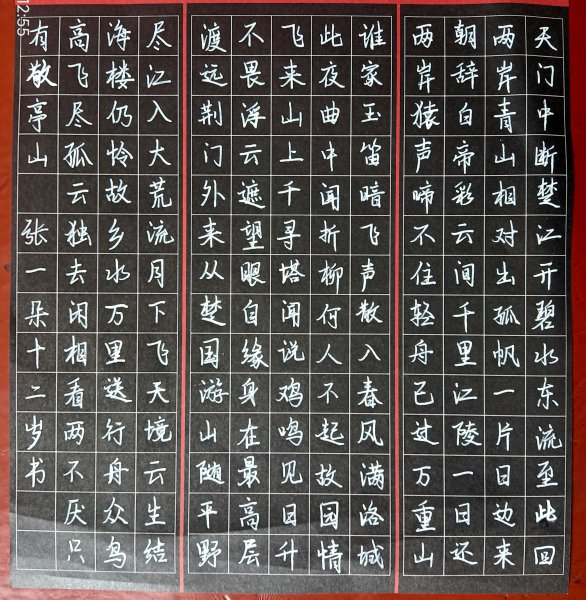 天门中断楚江开碧水东流至此回
两岸青山相对出孤帆一片日边来
朝辞白帝彩云间千里江陵一日还
两岸猿声啼不住轻舟已过万重山
谁家玉笛暗飞声散入春风满洛城
此夜曲中闻折柳何人不起故园情
飞来山上千寻塔闻说鸡鸣见日升
不畏浮云遮望眼自缘身在最高层
渡远荆门外来从楚国游山随平野
尽江入大荒流月下飞天境云生结
海楼仍怜故乡水万里送行舟众鸟
高飞尽孤云独去闲相看两不厌只
有敬亭山 张一朵十二岁书
12:55